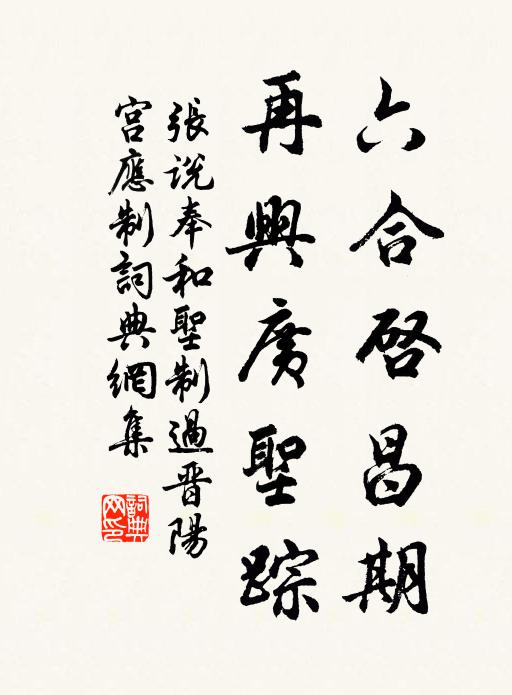 六合啓昌期
再興廣聖踪
張説奉和聖制過晋陽
宮應制詞典網集
詞典網印